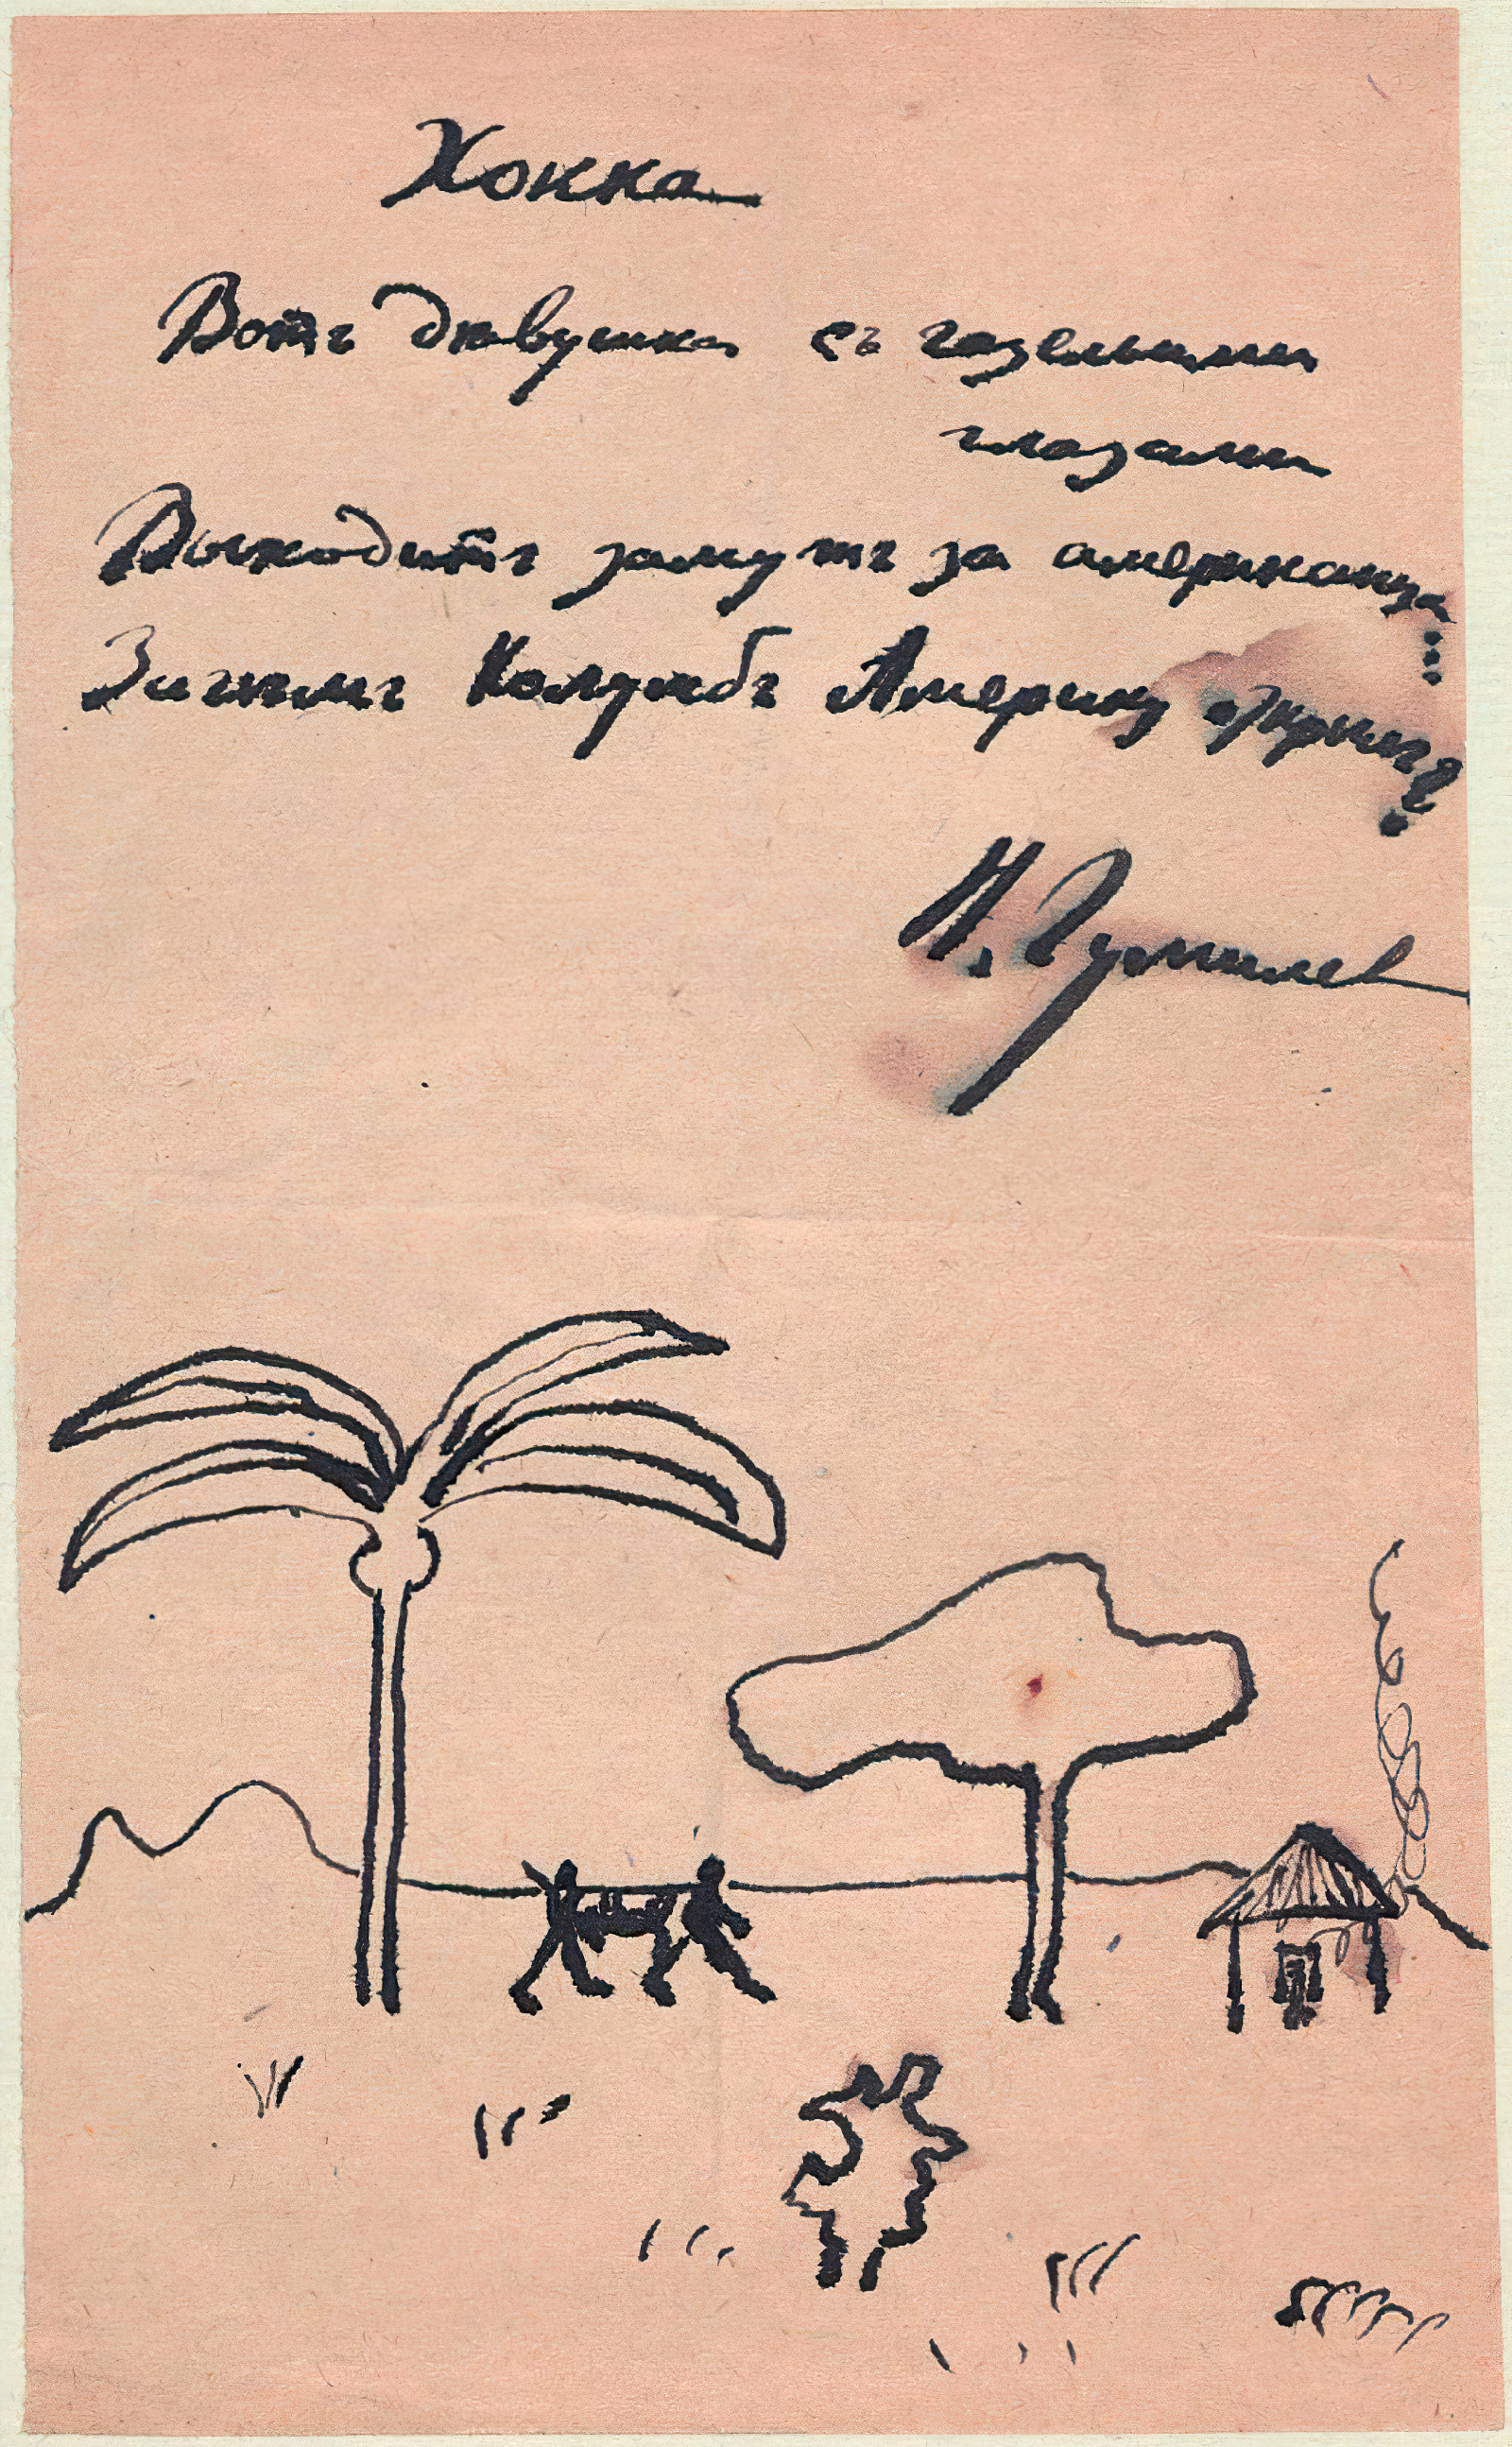 Хокка
Вотъ дѣвушка съ газельими
глазами
Выходитъ замужъ за американца...
Зачѣмъ Колумбъ Америку открылъ?
Н. Гумилев